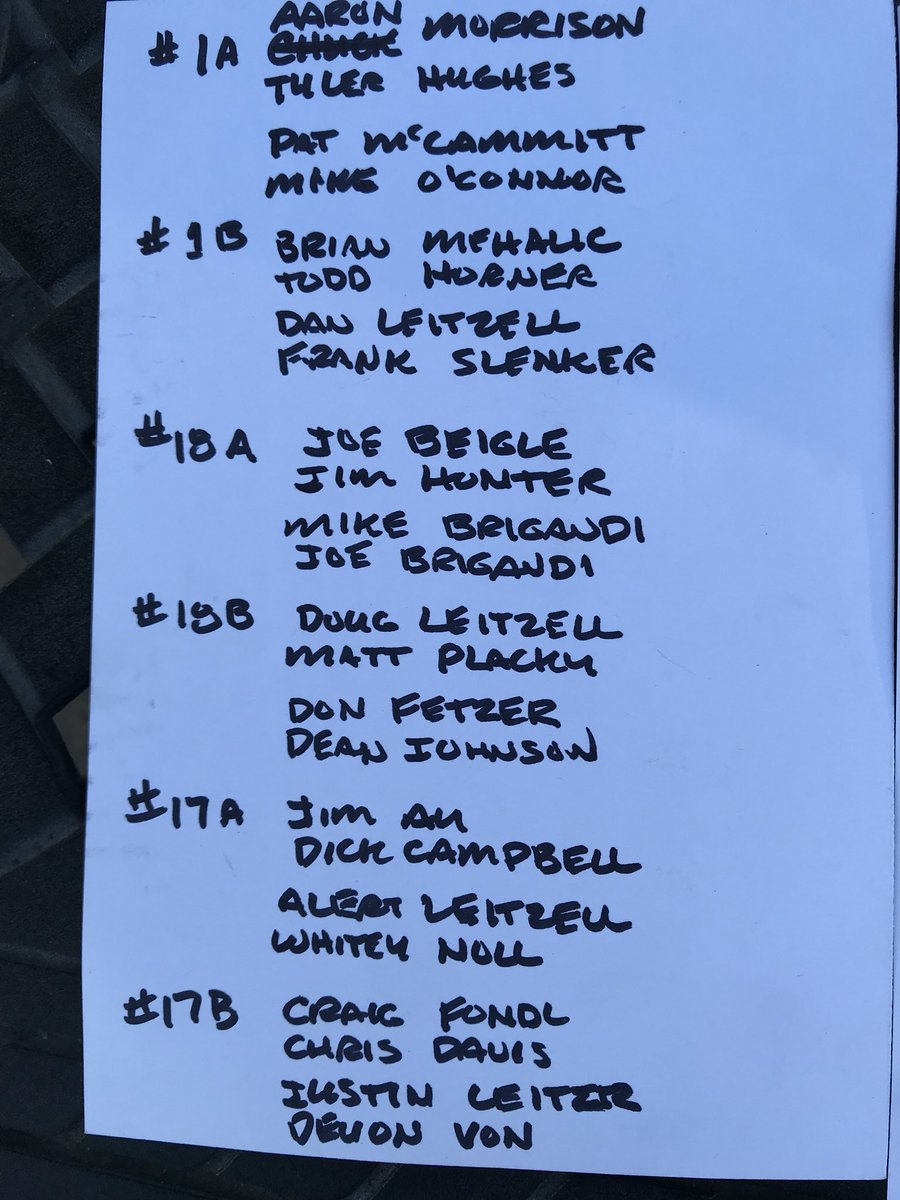 #1A AARON MORRISON
TYLER HUGHES
PAT McCAMMITT
MIKE O'CONNOR
#1B BRIAN MEHALIC
TODD HORNER
DAN LEITZELL
FRANK SLENKER
#18A JOE BEIGLE
JIM HUNTER
MIKE BRIGANDI
JOE BRIGANDI
#18B DOUG LEITZELL
MATT PLACKY
DON FETZER
DEAN JOHNSON
#17A JIM AU
DICK CAMPBELL
ALERT LEITZELL
WHITEY NOLL
#17B CRAIG FONDL
CHRIS DAVIS
JUSTIN
DEVON VON